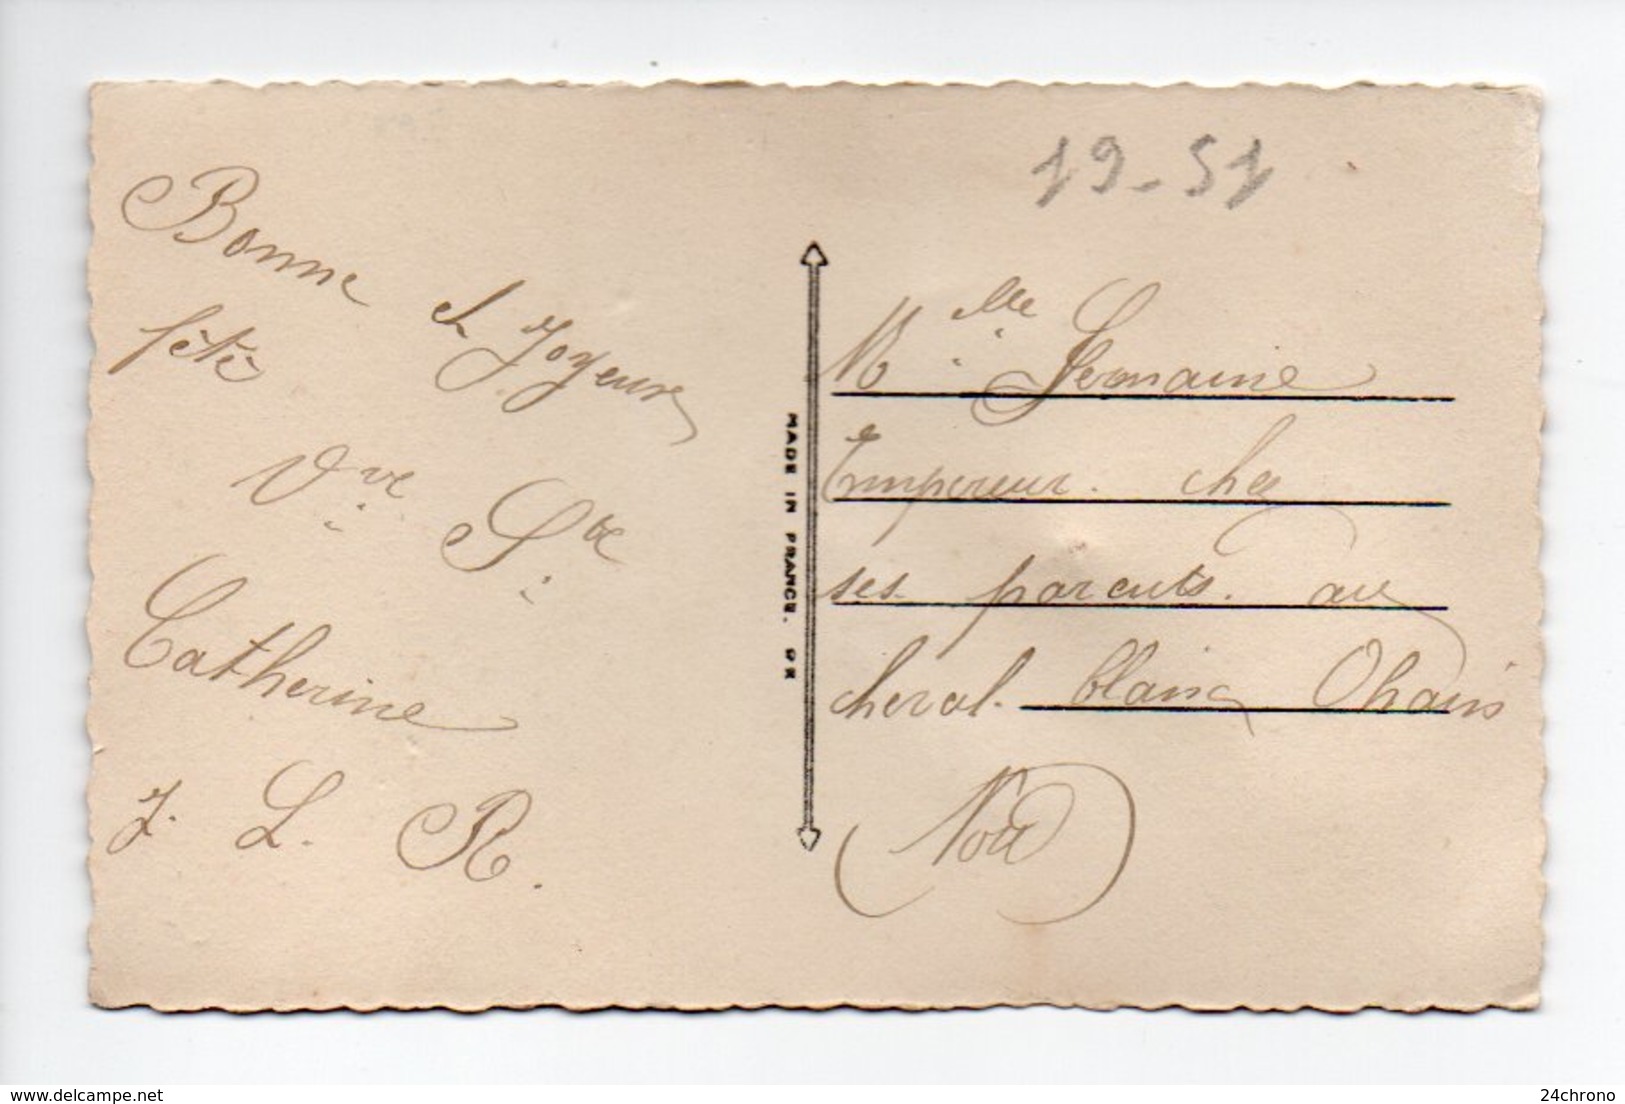 Bonne et Joyeuse
fête
Vve Ste
Catherine
J. L. R.
MADE IN FRANCE.
19-51
Mlle Germaine
Empereur. chez
ses parents. au
cheval. blanc Ohain
Nord
delcampe.net
24chrono